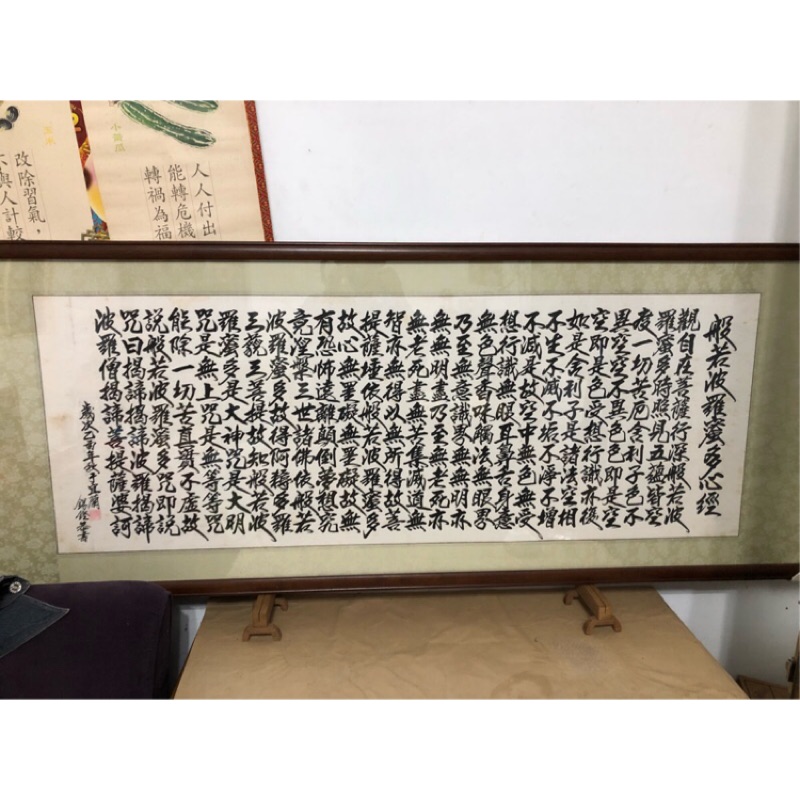 人人付出
能轉危機
轉禍為福
改除習氣，
不與人計較
般若波羅蜜多心經
觀自在菩薩行深般若波
羅蜜多時照見五蘊皆空
度一切苦厄舍利子色不
異空空不異色色即是
空即是色受想行識亦復
如是舍利子是諸法空相
不生不滅不垢不淨不增
不減是故空中無色無受
想行識無眼耳鼻舌身意
無色聲香味觸法無眼界
乃至無意識界無無明亦
無無明盡乃至無老死亦
無老死盡無苦集滅道無
智亦無得以無所得故菩
提薩埵依般若波羅蜜多
故心無罣礙無罣礙故無
有恐怖遠離顛倒夢想究
竟涅槃三世諸佛依般若
波羅蜜多故得阿耨多羅
三藐三菩提故知般若波
羅蜜多是大神咒是大明
咒是無上咒是無等等咒
能除一切苦真實不虛故
說般若波羅蜜多咒即說
咒曰揭諦揭諦波羅揭諦
波羅僧揭諦菩提薩婆訶
歲次乙酉年秋于宜蘭